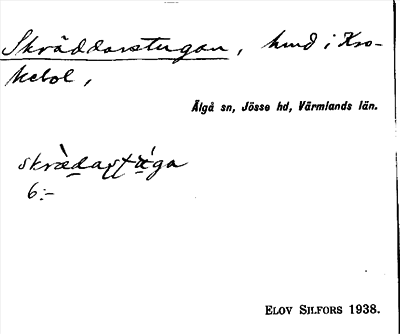 Skräddarstugan, hmd i Kro-
kebol,
Älgå sn, Jösse hd, Värmlands län.
6:-
ELOV SILFORS 1938.